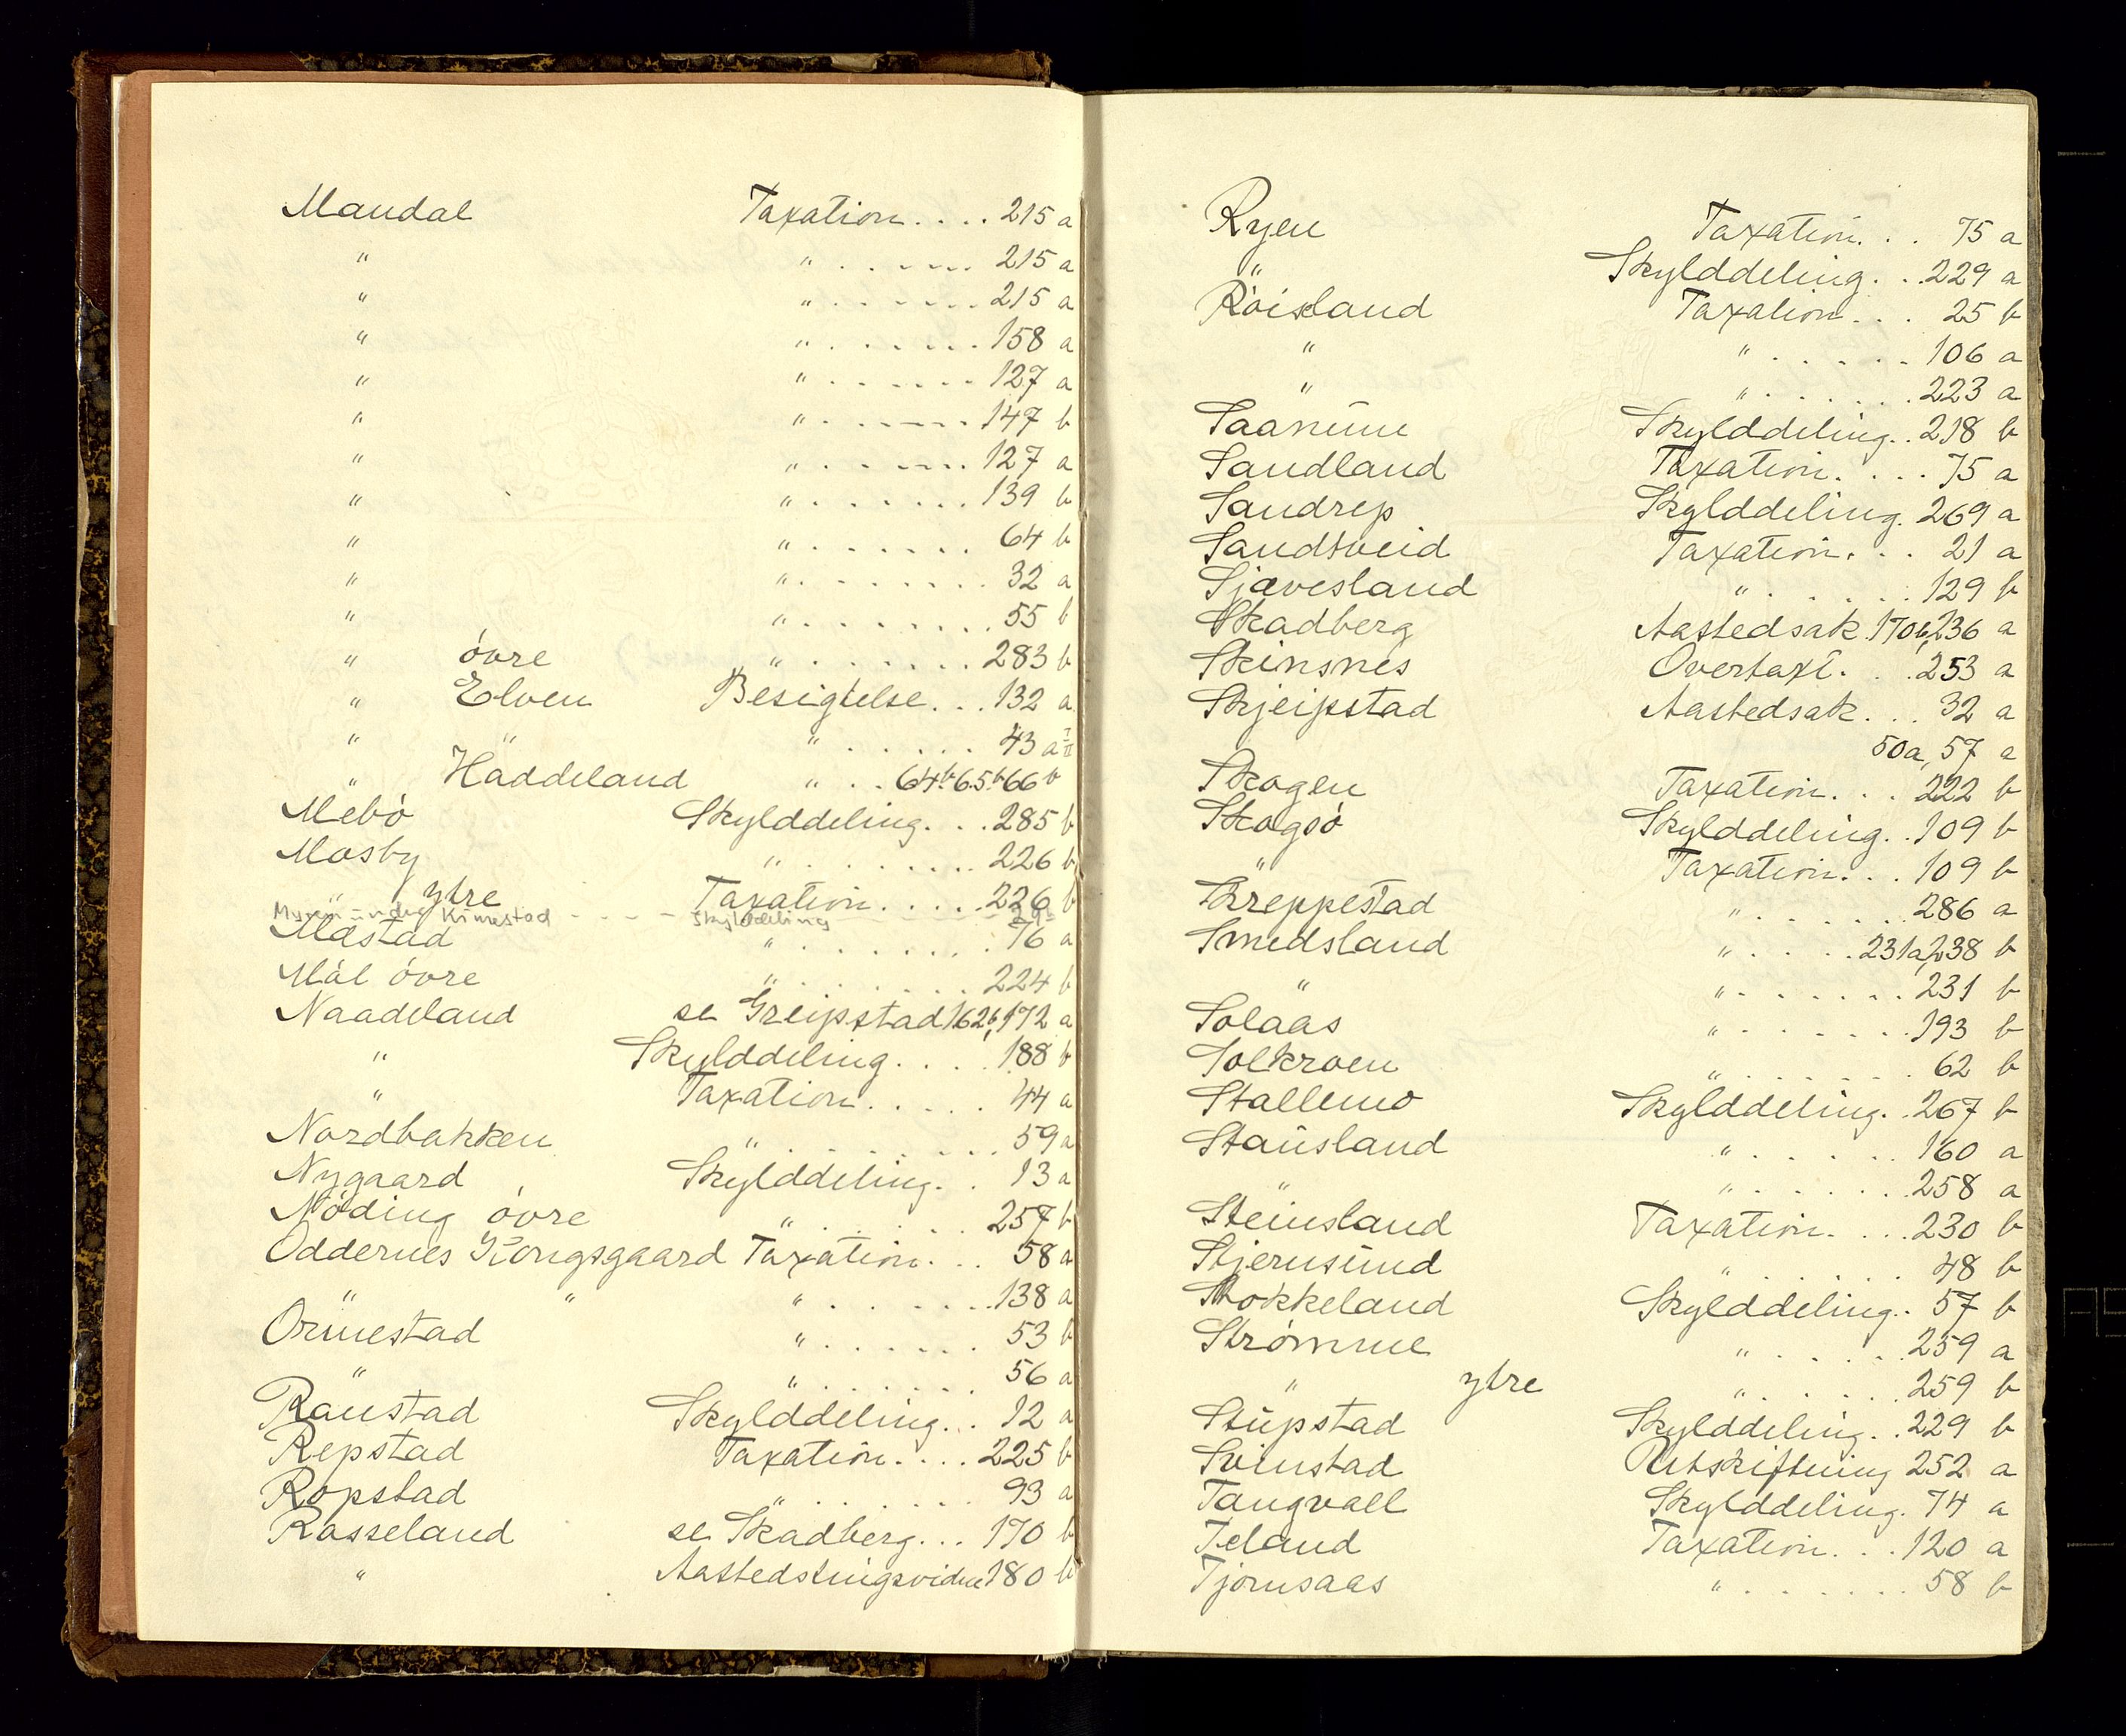 Mandal Taxation.... 215 a
" " ...... 215 a
" " ...... 215 a
" " ...... 158 a
" " ...... 127 a
" " ...... 147 b
" " ...... 127 a
" " ...... 139 b
" " ...... 64 b
" " ...... 32 a
" " ...... 55 b
" övre " ...... 283 b
" Elven Besigtelse... 132 a
" " " ...... 43 a
" Haddeland " .. 64b 65b 66 b
Mebö Skylddeling... 285 b
Mosby " ...... 226 b
" ytre Taxation..... 226 b
Skylddeling
Mæstad " ...... 76 a
Mål övre " ...... 224 b
Naadeland se Greipstad 162b, 172 a
" Skylddeling.... 188 b
" Taxation..... 44 a
Nordbakken " ...... 59 a
Nygaard Skylddeling.. 13 a
Nöding övre " ...... 257 b
Oddernes Kongsgaard Taxation... 58 a
" " " ...... 138 a
Ormestad " ...... 53 b
" " ...... 56 a
Ranstad Skylddeling... 12 a
Repstad Taxation.... 225 b
Ropstad " ...... 93 a
Rosseland se Skadberg... 170 b
" Aastedstingsvidne 180 b
Ryen Taxation... 75 a
" Skylddeling... 229 a
Röisland Taxation... 25 b
" " ...... 106 a
" " ...... 223 a
Saanum Skylddeling.. 218 b
Sandland Taxation.... 75 a
Sandrep Skylddeling. 269 a
Sandtveid Taxation... 21 a
Sjævesland " ...... 129 b
Skadberg Aastedsak. 170b, 236 a
Skinsnes Overtaxt... 253 a
Skjeipstad Aastedsak... 32 a
50a, 57 a
Skogen Taxation... 222 b
Skogsö Skylddeling.. 109 b
" Taxation... 109 b
Skreppestad " ...... 286 a
Smedsland " .... 231a, 238 b
" " ...... 231 b
Solaas " ...... 193 b
Solkroen " ...... 62 b
Stallemo Skylddeling.. 267 b
Stausland " ...... 160 a
" " ...... 258 a
Steinsland Taxation.... 230 b
Stjernsund " ...... 48 b
Stokkeland Skylddeling.. 57 b
Strømme " ...... 259 a
" ytre " ...... 259 b
Stupstad Skylddeling... 229 b
Svinstad Utskiftning 252 a
Tangvall Skylddeling. 74 a
Teland Taxation... 120 a
Tjomsaas " ...... 58 b